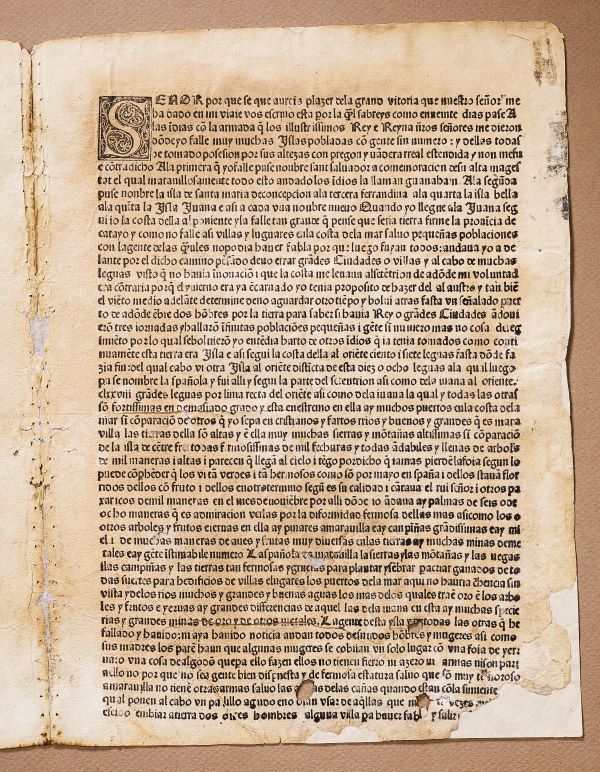 SEÑOR por que se que aureis plazer dela grand vitoria que nuestro señor me
ha dado en mi viaie vos escriuo esta por la ql̃ sabreys como enueinte dias pase A
las īdias cō la armada q̃ los illustrissimos Rey e Reyna ñros señores me dieron
ōdeyo falle muy muchas Islas pobladas cō gente sin numero: y dellas todas
he tomado posesion por sus altezas con pregon y uādera rreal estendida y non mefu
e cōtradicho Ala primera q̃ yofalle puse noubre sant saluador a comemoracion desu alta mages
tat el qual marauillosamente todo esto andado los īdios la llaman guanabam Ala segūda
puse nonbre la isla de santa maria deconcepcion ala tercera ferrandina ala quarta la isla bella
ala quīta la Isla Juana e asi a cada vna nonbre nueuo Quando yo llegue ala Juana seg
ui io la costa della al poniente yla falle tan grande q̃ pense que seria tierra firme la prouicia de
catayo y como no falle asi villas y luguares enla costa dela mar saluo pequeñas poblaciones
con lagente delas qūales nopodia hauer fabla por que luego fuyan todos: andaua yo a de
lante por el dicho camino pēsādo deuo errar grādes Ciudades o villas y al cabo de muchas
leguas visto q̃ no hauia īnouaciō i que la costa me leuaua alsetētrion de adōde mi voluntad
era cōtraria porq̃ el yuierno era ya ēcarnado yo tenia proposito dehazer del al austro y tan biē
el viēto medio adelāte determine deno aguardar otro tiēpo y bolui atras fasta vn señalado puer
to de adōde ēbie dos hōbres por la tierra para saber si hauia Rey o grādes Ciudades ādoui
erō tres iornadas yhallarō īfinitas poblaciōes pequeñas i gēte si numero mas no cosa dereg
imiēto por lo qual sebolnierō yo entēdia harto de otros īdios q̃ ia tenia tomados como conti
nuamēte esta tierra era Isla e asi segui la costa della al oriēte ciento i siete leguas fasta dōde fa
zia fin: del qual cabo vi otra Isla al oriēte disticta de esta diez o ocho leguas ala qual luego
pu se nombre la spañola y fui alli y segui la parte del setentrion asi como dela iuana al oriente.
clxxviii grādes leguas por linea recta del oriēte asi como dela iuana la qual y todas las otras
sō fortissimas en demasiado grado y esta enestremo en ella ay muchos puertos enla costa dela
mar si cōparaciō de otros q̃ yo sepa en cristianos y fartos rrios y buenos y grandes q̃ es mara
villa las tierras della sō altas y ē ella muy muchas sierras y mōtañas altissimas si cōparaciō
de la isla de cētre fre todas fermosissimas de mil fechuras y todas ādabiles y llenas de arbols
de mil maneras i altas i parecen q̃ llegā al cielo i tēgo pordicho q̃ iamas pierdēlafoia segun lo
puede cōphēder q̃ los vi tā verdes i tā hermosos como sō por mayo en spaña i dellos stauā flor
ridos dellos cō fruto i dellos enotrotermino segū es su calidad i cātaua el rui señor i otros pa
xaricos demil maneras en el mes denouiēbre por alli dōde io ādaua ay palmas de seis ode
ocho maneras que es admiracion verlas por la diformidad fermosa dellas mas asicomo los o
otros arboles y frutos eiernas en ella ay pinares amarauilla eay canpiñas grādissimas eay mi
el i de muchas maneras de aues y frutas muy diuersas enlas tierras ay muchas minas deme
tales eay gēte istimabile numero La spañola es marauilla la sierras ylas mōtañas y las uegas
ilas campiñas y las tierras tan fermosas ygruesas para plantar ysēbrar pacriar ganados de to
das suertes para hedificios de villas elugares los puertos dela mar aqui no hauria chencia sin
vista ydelos rios muchos y grandes y buenas aguas los mas delos quales traē oro ē los arbo
les y frutos e yeruas ay grandes differencias de aquel las dela iuana en esta ay muchas specie
rias y grandes minas de oro y de otros metales. La gente desta ysla y detodas las otras q̃ he
fallado y hauido: ni aya hauido noticia andan todos desnudos hōbres y mugeres asi como
sus madres los parē haun que algunas mugeres se cobijan vn solo lugar cō vna foia de yer
ua: o vna cosa de algodō quepa ello fazen ellos no tienen fierro ni azero ni armas ni son para
aello no por que no sea gente bien dispuesta y de fermosa estatura saluo que sō muy temoroso
amarauilla no tienē otras armas saluo las delas cañas quando estan cōla simiente
qual ponen al cabo vn palillo agudo eno osan vsar de aq̃llas que veces
escido embiar atierra dos otres hombres alguna villa pa hauer fabl y salir